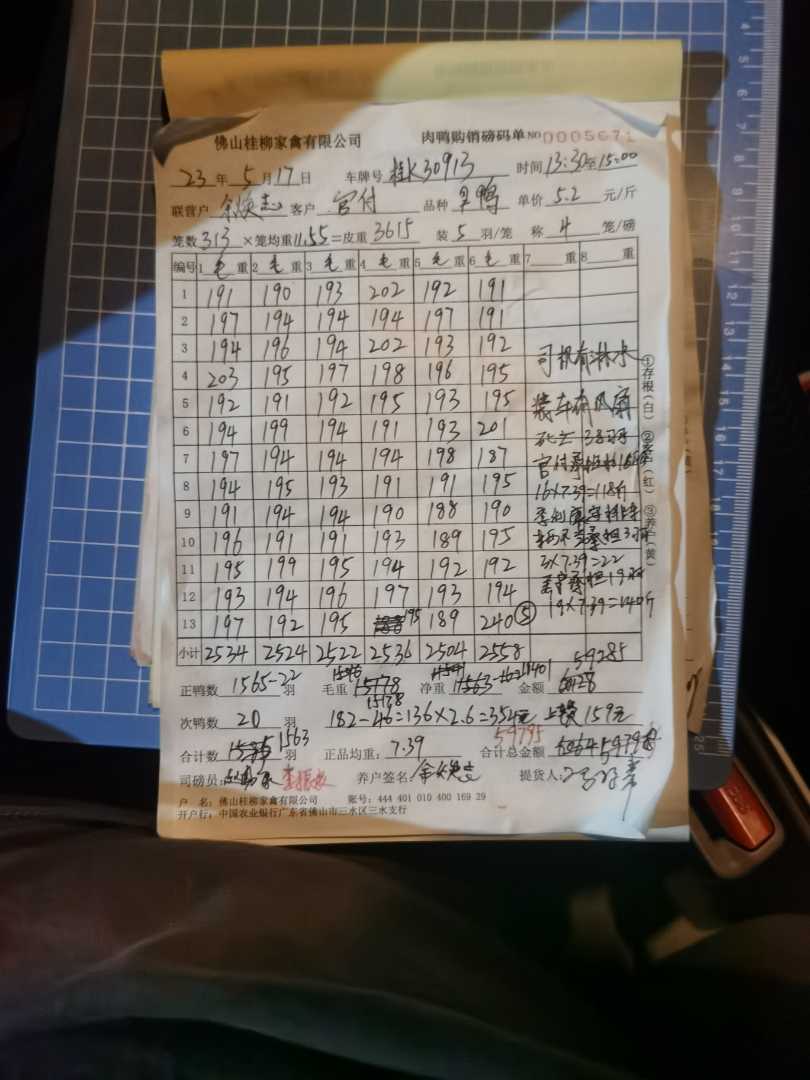 佛山桂柳家禽有限公司 肉鸭购销磅码单 NO 0005671
23 年 5 月 17 日 车牌号 桂K30913 时间 13:30至15:00
联营户 余焕志 客户 官付 品种 单价 5.2 元/斤
笼数 313 ×笼均重 11.55 =皮重 3615 装 5 羽/笼 称 4 笼/磅
编号 1 毛 重 2 毛 重 3 毛 重 4 毛 重 5 毛 重 6 毛 重 7 重 8 重
1 191 190 193 202 192 191
2 197 194 194 194 197 191
3 194 196 194 202 193 192
4 203 195 197 198 196 195
5 192 191 192 195 193 195
6 194 199 194 191 193 201
7 197 194 194 194 198 187
8 194 195 193 191 191 195
9 191 194 194 190 188 190
10 196 191 191 193 189 195
11 195 199 195 194 192 192
12 193 194 196 197 193 194
13 197 192 195 195 189 240 ⑤
小计 2534 2524 2522 2536 2504 2558
司机有淋水
装车有风扇
死亡 38羽
16×7.39=118斤
3×7.39=22
19×7.39=140斤
①存根(白) ②客户(红) ③养户(黄)
59285
正鸭数 1565-22 羽 毛重 15178 净重 11563 金额
15138
次鸭数 20 羽 182-46=136×2.6=354元 159元
合计数 1563 羽 正品均重: 7.39 59795 合计总金额
司磅员: 养户签名: 余焕志 提货人:
户 名: 佛山桂柳家禽有限公司 账号: 444 401 010 400 169 29
开户行: 中国农业银行广东省佛山市三水区三水支行